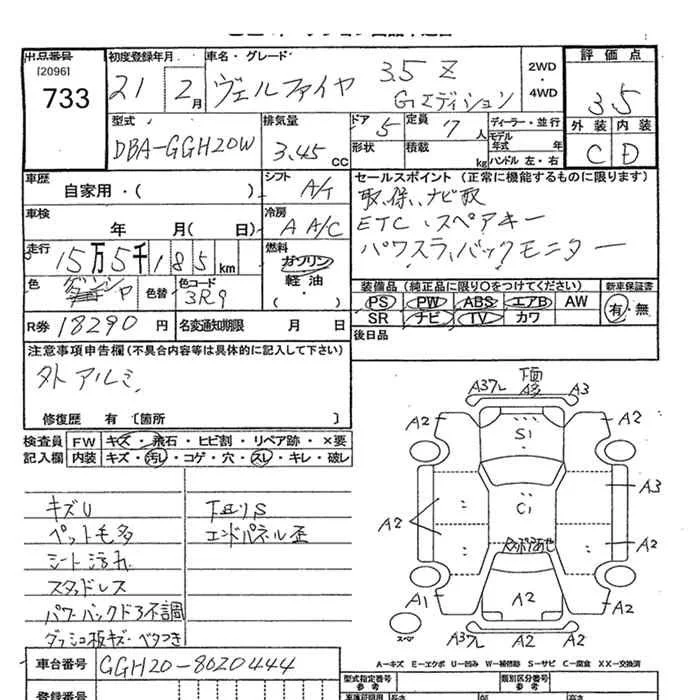 出品番号
[2096]
733
初度登録年月
21 2月
車名・グレード
ヴェルファイヤ 3.5 Z
Gエディション
2WD
・
4WD
評価点
3.5
外装 内装
C D
型式
DBA-GGH20W
排気量
3.45 CC
ドア 5
形状
定員 7人
積載 kg
ディーラー・並行
モデル年式 年
ハンドル 左・右
車歴
自家用・( )
シフト
A/T
車検
年 月( 日)
冷房
A A/C
走行
15万5千185km
燃料
ガソリン
軽油
・( )
色
色替
色コード
3R9
R券 18290円
名変通知期限 月 日
セールスポイント(正常に機能するものに限ります)
取、保、ナビ取
ETC、スペアキー
パワスラ、バックモニター
装備品(純正品に限り○をつけてください)
PS PW ABS エアB AW
SR ナビ TV カワ
新車保証書
有・無
後日品
注意事項申告欄(不具合内容等は具体的に記入して下さい)
外アルミ、
修復歴 有〔箇所 〕
検査員 FW キズ・飛石・ヒビ割・リペア跡・×要
記入欄 内装 キズ・汚レ・コゲ・穴・スレ・キレ・破レ
キズU
ペット毛多
シート汚れ
スタッドレス
パワーバックドア不調
ダッシュ板キズ・ベタつき
下廻りS
エンドパネル歪
下面
A3ワレ A3 A3
A2 A2
S1
A3
C1
A2
A2
A1 A2 A2
スペア
A3ワレ A2 A2
A-キズ E-エクボ U-凹み W-補修跡 S-サビ C-腐食 XX-交換済
車台番号 GGH20-8020444
登録番号
型式指定番号
参考
類別区分番号
参考